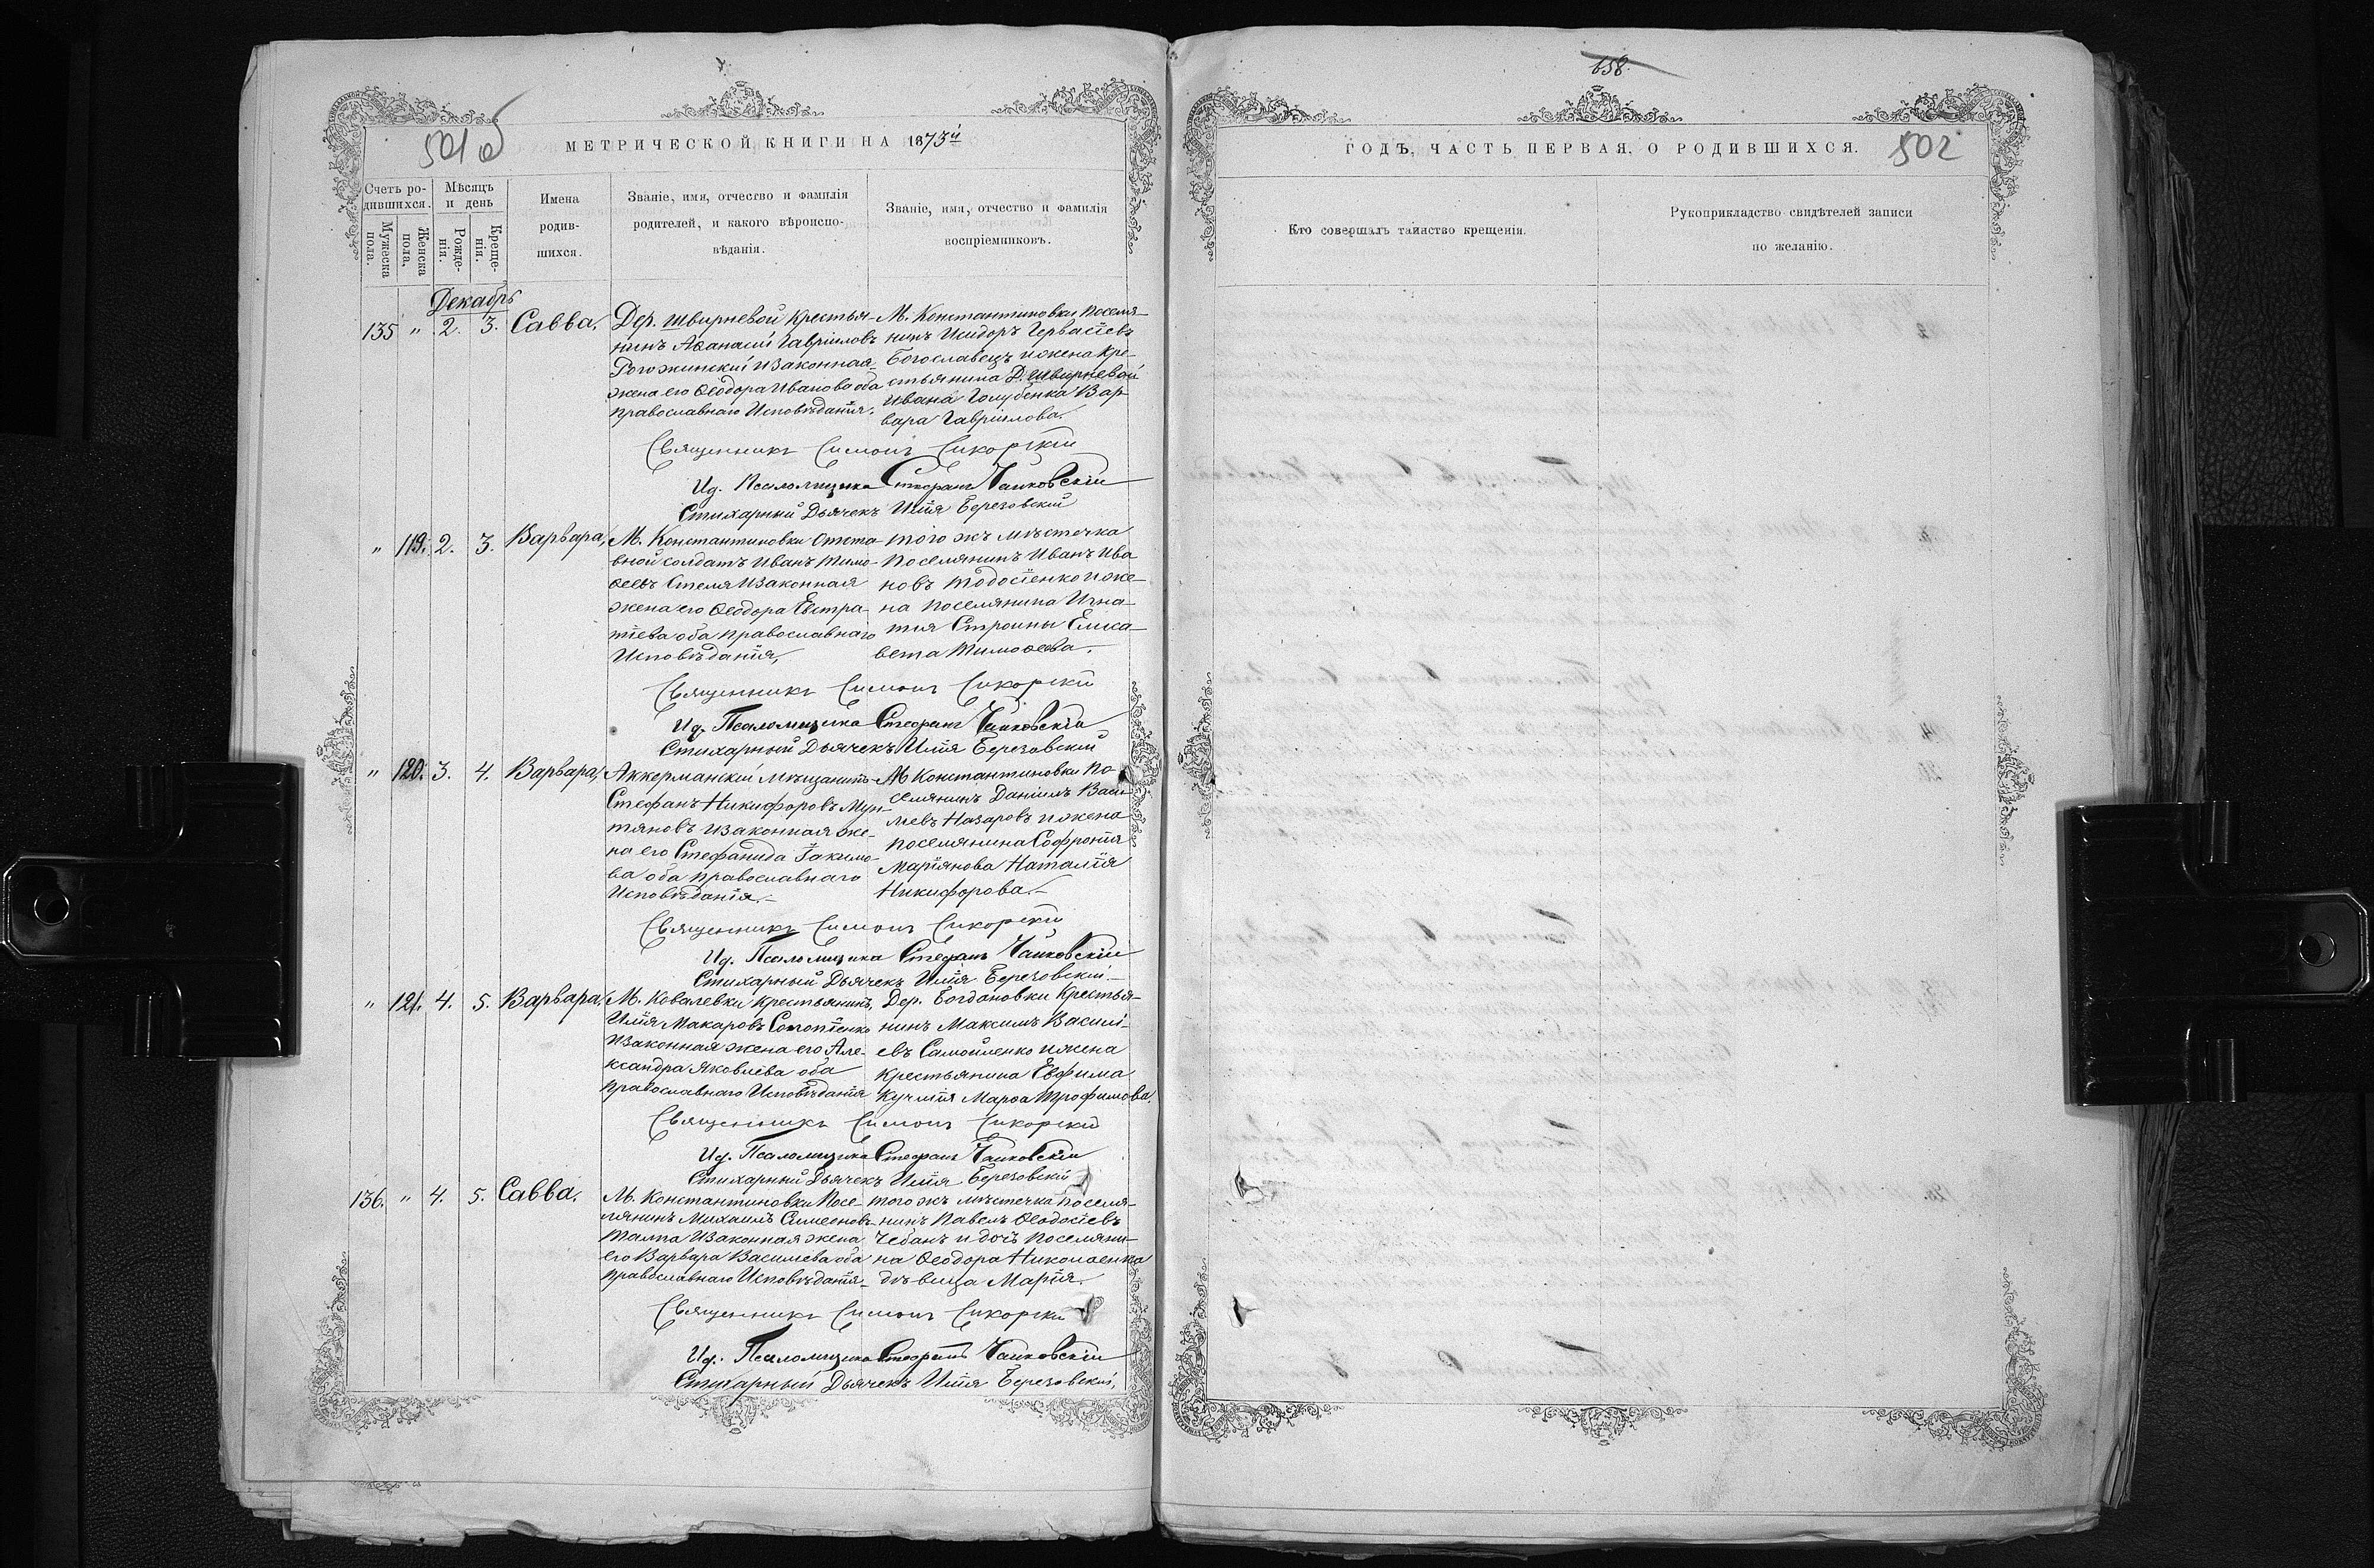 501 об
МЕТРИЧЕСКОЙ КНИГИ НА 1873й
Счетъ ро-
дившихся.
Мужеска
пола.
Женска
пола.
Мѣсяцъ
и день
Рожде-
нія.
Креще-
нія.
Имена
родив-
шихся.
Званіе, имя, отчество и фамилія
родителей, и какого вѣроиспо-
вѣданія.
Званіе, имя, отчество и фамилія
воспріемниковъ.
Декабрь
135 " 2. 3. Савва.
Дер. Швырневой крестья-
нинъ Аѳанасій Гавріиловъ
Рогожинскій и законная
жена его Ѳеодора Иванова оба
православнаго Исповѣданія.
М. Константиновки поселя-
нинъ Исидоръ Гервасіевъ
Богославецъ и жена кре-
стьянина Д. Швырневой
Ивана Голубенка Вар-
вара Гавріилова.
Священникъ Симонъ Сикорскій
Ид. Псаломщика Стефанъ Чайковскій
Стихарный Дьячекъ Илія Березовскій
" 119. 2. 3. Варвара,
М. Константиновки отста-
вной солдатъ Иванъ Тимо-
ѳеевъ Стеля и законная
жена его Ѳеодора Евстра-
тіева оба православнаго
Исповѣданія,
того жъ мѣстечка
поселянинъ Иванъ Ива
новъ Тодосіенко и же-
на поселянина Игна-
тія Строины Елиса-
вета Тимоѳеева.
Священникъ Симонъ Сикорскій
Ид. Псаломщика Стефанъ Чайковскій
Стихарный Дьячекъ Илія Березовскій
" 120. 3. 4. Варвара,
Аккерманскій мѣщанинъ
Стефанъ Никифоровъ Мун-
тяновъ и законная же-
на его Стефанида Іакимо-
ва оба православнаго
Исповѣданія.
М Константиновки по-
селянинъ Даніилъ Васи-
ліевъ Назаровъ и жена
поселянина Софронія
Маріянова Наталія
Никифорова.
Священникъ Симонъ Сикорскій
Ид. Псаломщика Стефанъ Чайковскій
Стихарный Дьячекъ Илія Березовскій.
" 121. 4. 5. Варвара,
М. Ковалевки крестьянинъ,
Илія Макаровъ
и законная жена его Але-
ксандра Яковлева оба
православнаго Исповѣданія
Дер. Богдановки Крестья-
нинъ Максимъ Василі-
евъ Самойленко и жена
крестьянина Евфима
Марѳа Трофимова.
Священникъ Симонъ Сикорскій
Ид. Псаломщика Стефанъ Чайковскій
Стихарный Дьячекъ Илія Березовскій
136. " 4. 5. Савва.
М. Константиновки Посе-
лянинъ Михаилъ Симеоновъ
Талпа и законная жена
его Варвара Василіева оба
православнаго Исповѣданія
того жъ мѣстечка поселя-
нинъ Павелъ Ѳеодосіевъ
Чебанъ и дочь поселяни-
на Ѳеодора Николаенка
дѣвица Марія.
Священникъ Симонъ Сикорскій
Ид. Псаломщика Стефанъ Чайковскій
Стихарный Дьячекъ Илія Березовскій,
658.
ГОДЪ, ЧАСТЬ ПЕРВАЯ, О РОДИВШИХСЯ.
502
Кто совершалъ таинство крещенія.
Рукоприкладство свидѣтелей записи
по желанію.